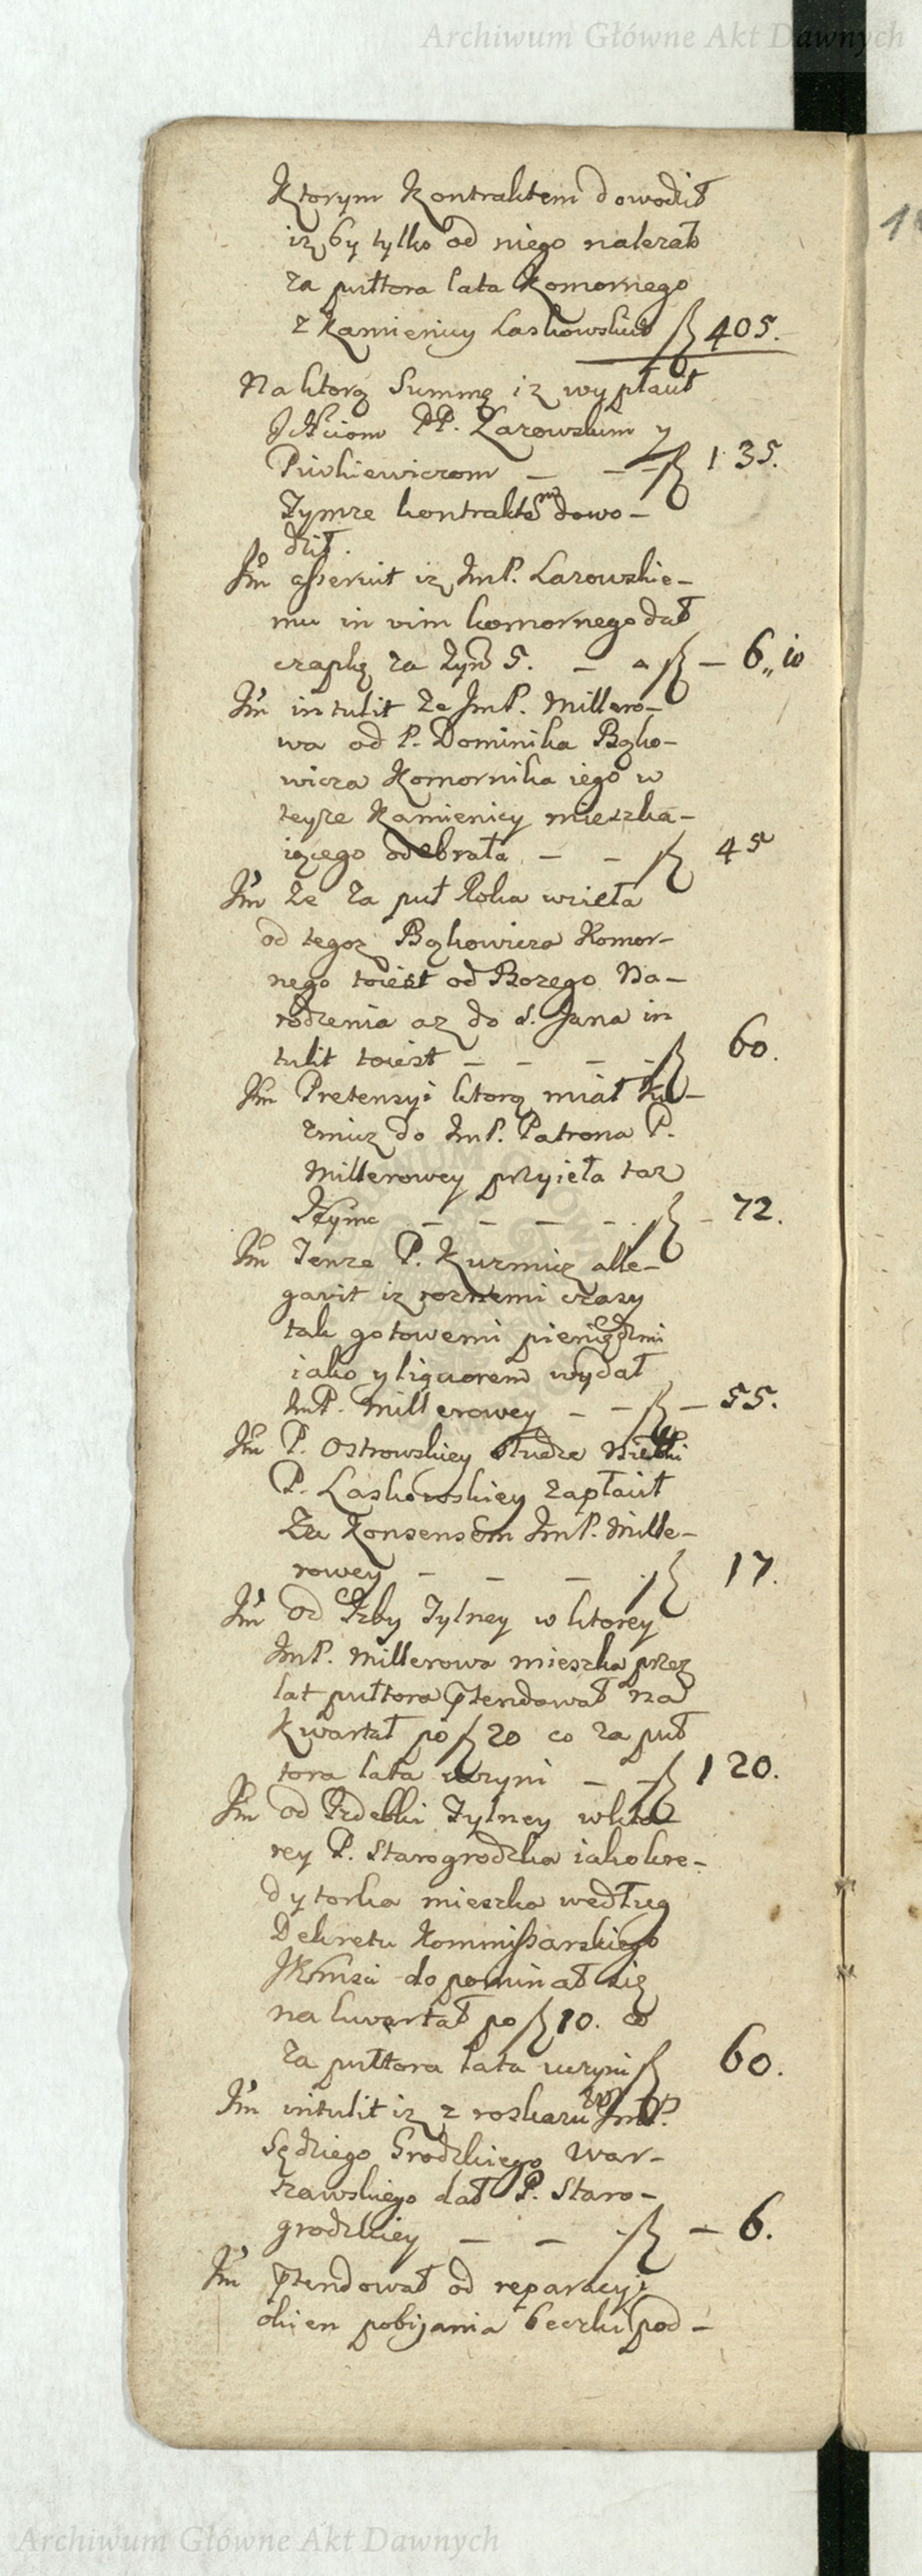 Archiwum Główne Akt Dawnych
Ktorym Kontraktem dowodził
iz by tylko od niego nalezało
za pułtora lata Komornego
z Kamienicy Laskowskich fl 405.
Na ktorą Summę iz wypłacił
Ichciom PP. Lazowskim y
Piwkiewiczom — — fl 135.
Tymze kontraktem dowo-
dził.
Itm asseruit iz ImP. Lazowskie-
mu in vim komornego dał
czapkę za Tynf 5. — fl — 6„10
Itm intulit ze ImP. Millero-
wa od P. Dominika Bąko-
wicza Komornika iego w
teyze Kamienicy mieszka-
iącego odebrała — — fl 45
Itm ze za puł Roku wzieła
od tegoz Bąkowicza Komor-
nego toiest od Bozego Na-
rodzenia az do S. Jana in
tulit toiest — — — fl 60.
Itm Pretensyi ktorą miał Kur-
zmicz do ImP. Patrona P.
Millerowey przyieła taz
— — — — fl — 72.
Itm Tenze P. Kurmicz alle-
gavit iz roznemi czasy
tak gotowemi pieniędzmi
iako y liquorem wydał
ImP. Millerowey — — fl — 55.
Itm P. Ostrowskiey słudze
P. Laskowskiey zapłacił
Za Konsensem ImP. Mille-
rowey — — — fl 17.
Itm od Izby Tylney w ktorey
ImP. Millerowa mieszka przez
lat pułtora prtendował na
Kwartał po fl 20 co za puł
tora lata uczyni — — fl 120.
Itm od Izdebki Tylney w kto-
rey P. Starogrodzka iako kre-
dytorka mieszka według
Dekretu Kommissarskiego
JKMsci dopominał się
na kwartał po fl 10. co
za pułtora lata uczyni fl 60.
Itm intulit iz z roskazu ImP.
Sędziego Grodzkiego War-
szawskiego dał P. Staro-
grodzkiey — — fl — 6.
Itm prtendował od reparacyi
okien pobijania beczki pod-
Archiwum Główne Akt Dawnych